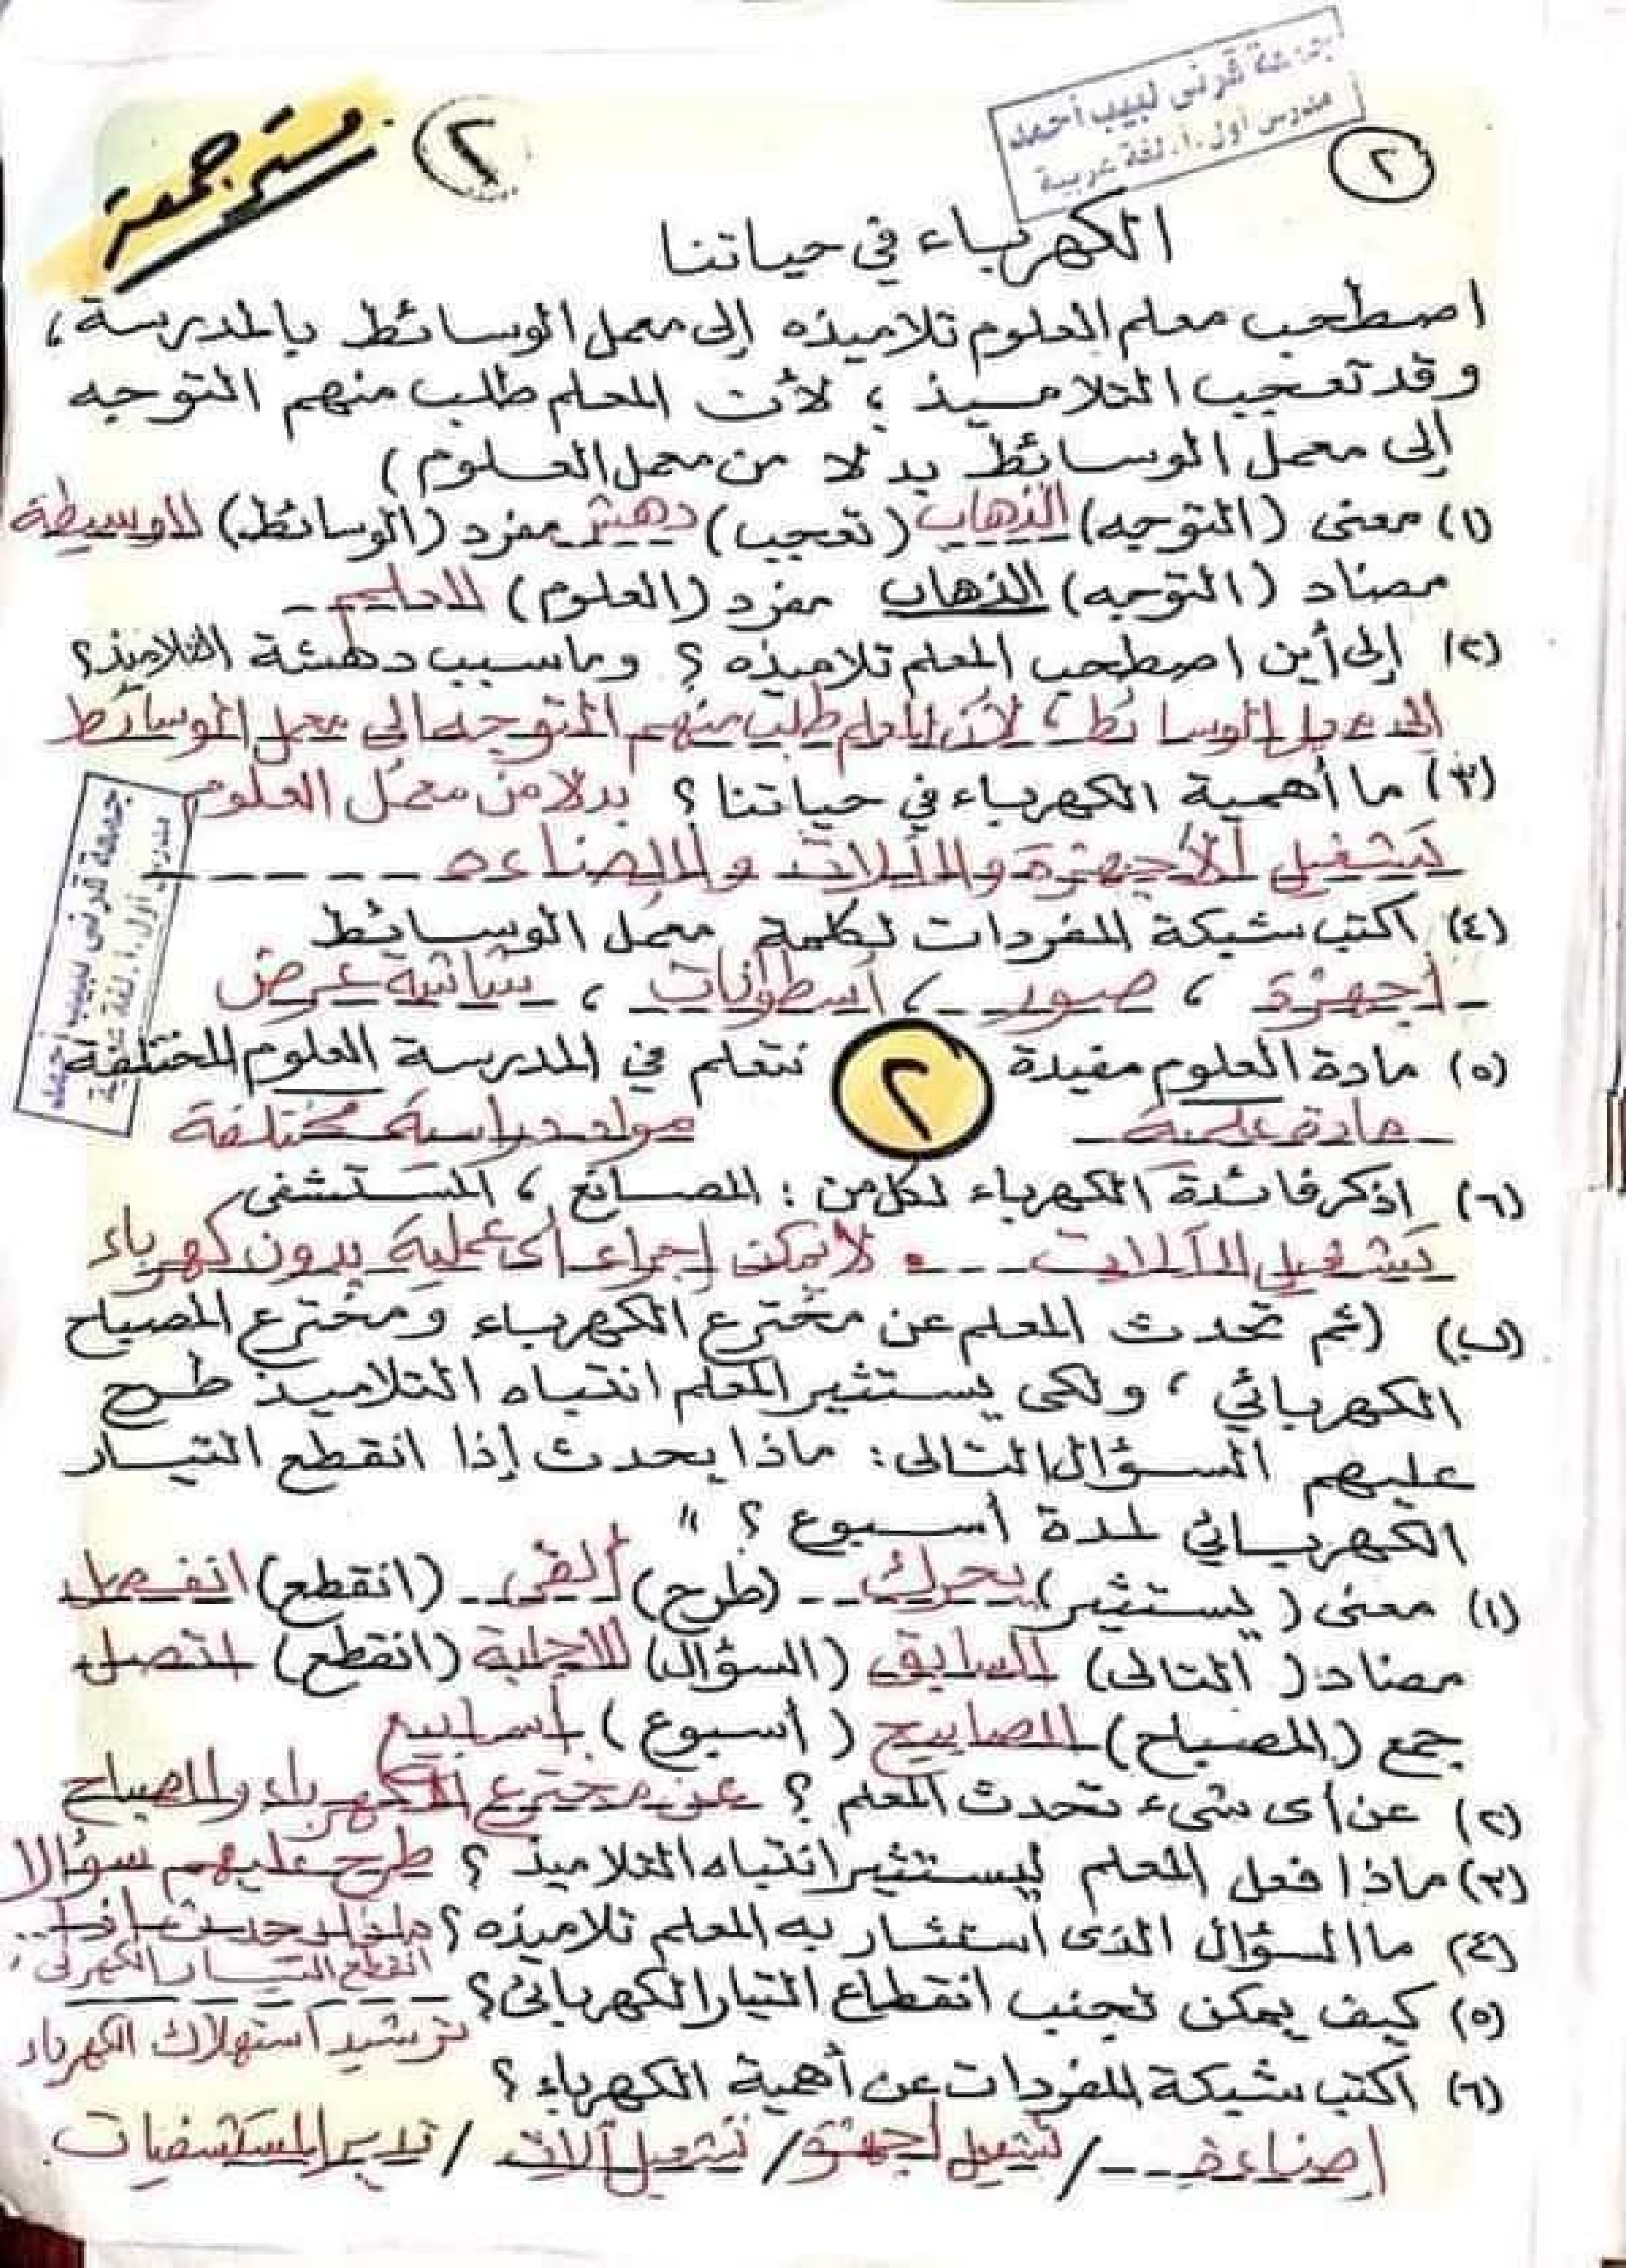 جمعة قرنى لبيب أحمد
مدرس أول.أ. لغة عربية
٢
٢
مستر جمعة
الكهرباء في حياتنا
اصطحب معلم العلوم تلاميذه إلى معمل الوسائط بالمدرسة،
وقد تعجب التلاميذ؛ لأن المعلم طلب منهم التوجه
إلى معمل الوسائط بدلا من معمل العلوم)
(١) معنى (التوجه) الذهاب (تعجب) دهش مفرد (الوسائط) الوسيطة
مضاد (التوجه) الذهاب مفرد (العلوم) العلم
(٢) إلى أين اصطحب المعلم تلاميذه؟ وما سبب دهشة التلاميذ؟
إلى معمل الوسائط، لأن المعلم طلب منهم التوجه إلى معمل الوسائط
بدلا من معمل العلوم
(٣) ما أهمية الكهرباء في حياتنا؟
تشغيل الأجهزة والآلات والإضاءة
جمعة قرنى لبيب أحمد
مدرس أول.أ. لغة عربية
(٤) اكتب شبكة المفردات لكلمة معمل الوسائط
أجهزة، صور، أسطوانات، شاشة عرض
(٥) مادة العلوم مفيدة ٢ نتعلم في المدرسة العلوم المختلفة
مادة علمية مواد دراسية مختلفة
(٦) اذكر فائدة الكهرباء لكل من: المصانع، المستشفى
تشغيل الآلات . لا يمكن إجراء أى عملية بدون كهرباء
(ب) (ثم تحدث المعلم عن مخترع الكهرباء ومخترع المصباح
الكهربائي، ولكى يستثير المعلم انتباه التلاميذ طرح
عليهم السؤال التالى: ماذا يحدث إذا انقطع التيار
الكهربائي لمدة أسبوع؟"
(١) معنى (يستثير) يحرك (طرح) ألقى (انقطع) انفصل
مضاد (التالى) السابق (السؤال) الإجابة (انقطع) اتصل
جمع (المصباح) المصابيح (أسبوع) أسابيع
(٢) عن أى شىء تحدث المعلم؟ عن مخترع الكهرباء والمصباح
(٣) ماذا فعل المعلم ليستثير انتباه التلاميذ؟ طرح عليهم سؤالا
(٤) ما السؤال الذى استثار به المعلم تلاميذه؟ ماذا يحدث إذا..
انقطع التيار الكهربى؟
(٥) كيف يمكن تجنب انقطاع التيار الكهربائى؟
ترشيد استهلاك الكهرباء
(٦) اكتب شبكة المفردات عن أهمية الكهرباء؟
إضاءة / تشغيل أجهزة / تشغيل آلات / تدير المستشفيات